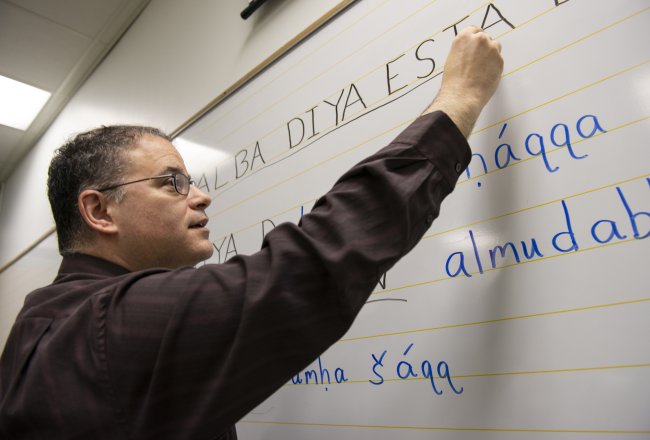 ALBA DIYA ESTA
ḥáqqa
YA
almudab
N
umḥa šáqq